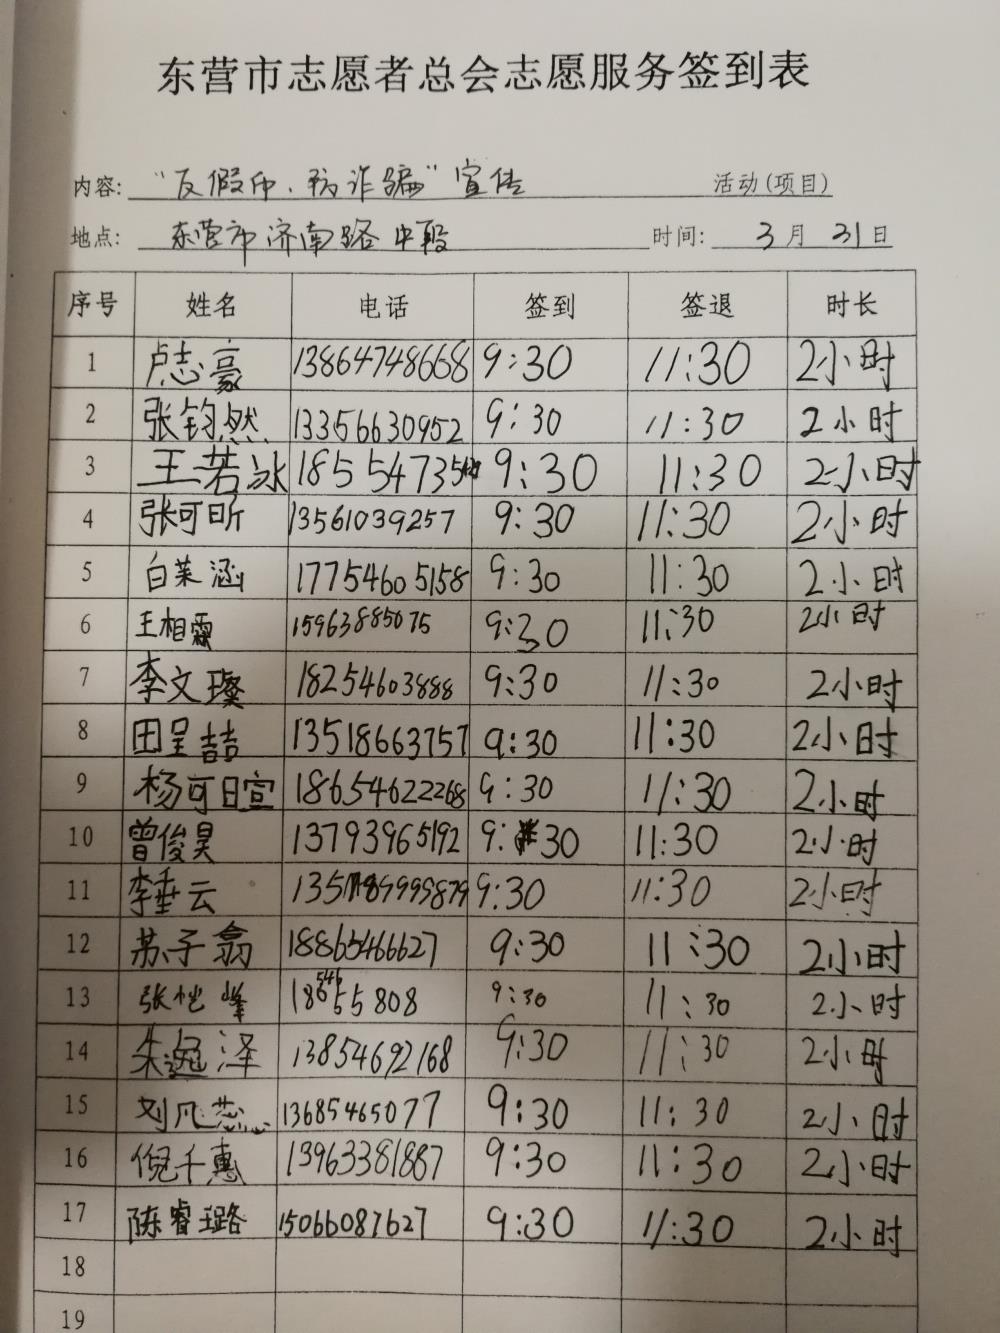 东营市志愿者总会志愿服务签到表
内容: “反假币、防诈骗”宣传 活动(项目)
地点: 东营市济南路中段 时间: 3月31日
序号 姓名 电话 签到 签退 时长
1 卢志豪 13864748668 9:30 11:30 2小时
2 张钧然 13356630952 9:30 11:30 2小时
3 王若冰 9:30 11:30 2小时
4 张可昕 13561039257 9:30 11:30 2小时
5 白茉涵 17754605158 9:30 11:30 2小时
6 王相霖 15963885075 9:30 11:30 2小时
7 李文璨 18254603888 9:30 11:30 2小时
8 田呈喆 13518663757 9:30 11:30 2小时
9 杨可日宣 18654622268 9:30 11:30 2小时
10 曾俊昊 13793965192 9:30 11:30 2小时
11 李垂云 9:30 11:30 2小时
12 苏子翕 18865466627 9:30 11:30 2小时
13 张恺峰 9:30 11:30 2小时
14 朱逸泽 13854692168 9:30 11:30 2小时
15 刘凡蕊 13685465077 9:30 11:30 2小时
16 倪千惠 13963381887 9:30 11:30 2小时
17 陈睿璐 15066087627 9:30 11:30 2小时
18
19